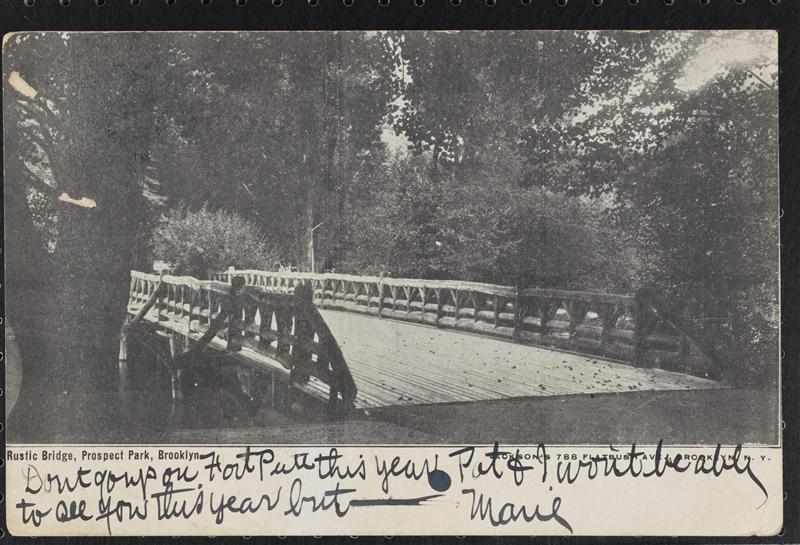 Rustic Bridge, Prospect Park, Brooklyn
JACKSON'S 788 FLATBUSH AVE., BROOKLYN, N. Y.
Dont go up on Fort Putt this year Pat & I wont be ably
to see you this year but —
Marie